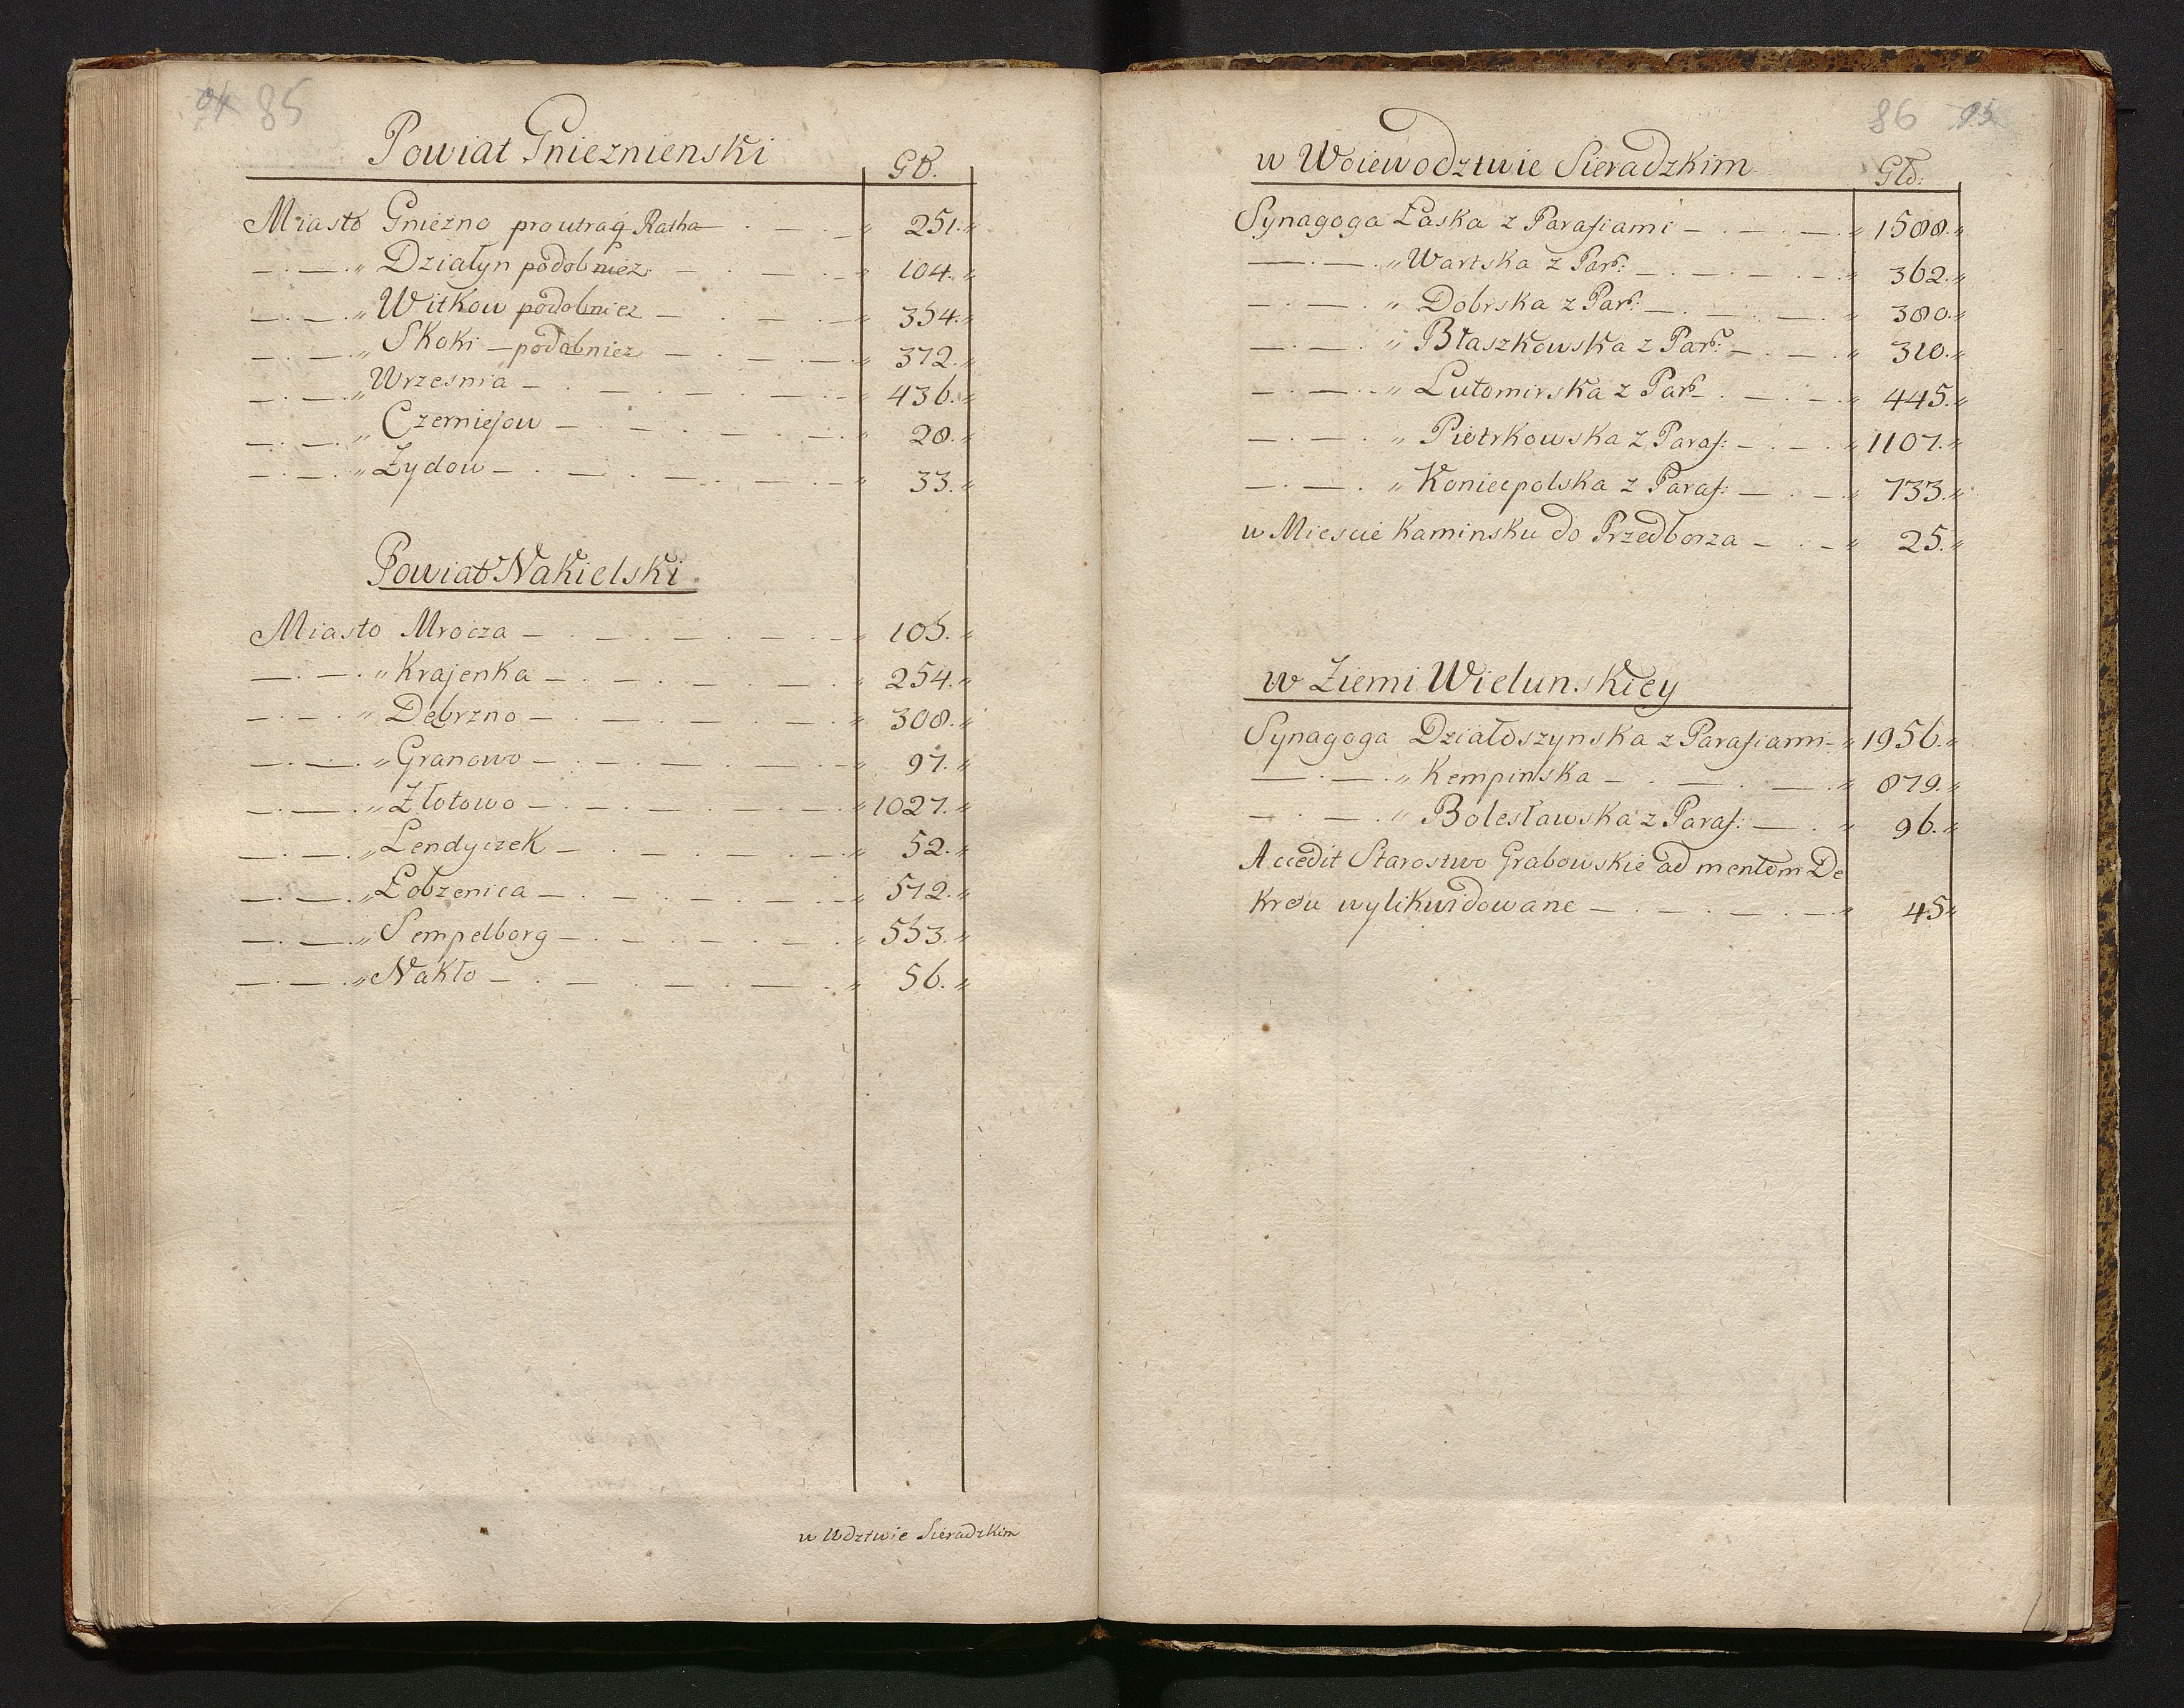 85
Powiat Gnieznienski
Gł.
Miasto Gniezno pro utraq Ratha 251.
Działyn podobniez 104.
Witkow podobniez 354.
Skoki podobniez 372.
Wrzesnia 436.
Czerniejow 28.
Zydow 33.
Powiat Nakielski
Miasto Mrocza 105.
Krajenka 254.
Debrzno 308.
Granowo 97.
Złotowo 1027.
Lendyczek 52.
Łobzenica 572.
Sempelborg 553.
Nakło 56.
w Wdztwie Sieradzkim
86
w Woiewodztwie Sieradzkim
Głd:
Synagoga Łaska z Parafiami 1588.
Wartska z Parf: 362.
Dobrska z Parf: 380.
Błaszkowska z Parf: 310.
Lutomirska z Parf 445.
Pietrkowska z Paraf: 1107.
Koniecpolska z Paraf: 733.
w Miescie Kaminsku do Przedborza 25.
w Ziemi Wielunskiey
Synagoga Działoszynska z Parafiami 1956.
Kempinska 879.
Bolesławska z Paraf: 96.
Accedit Starostwo Grabowskie ad mentem De
kretu wylikwidowane 45